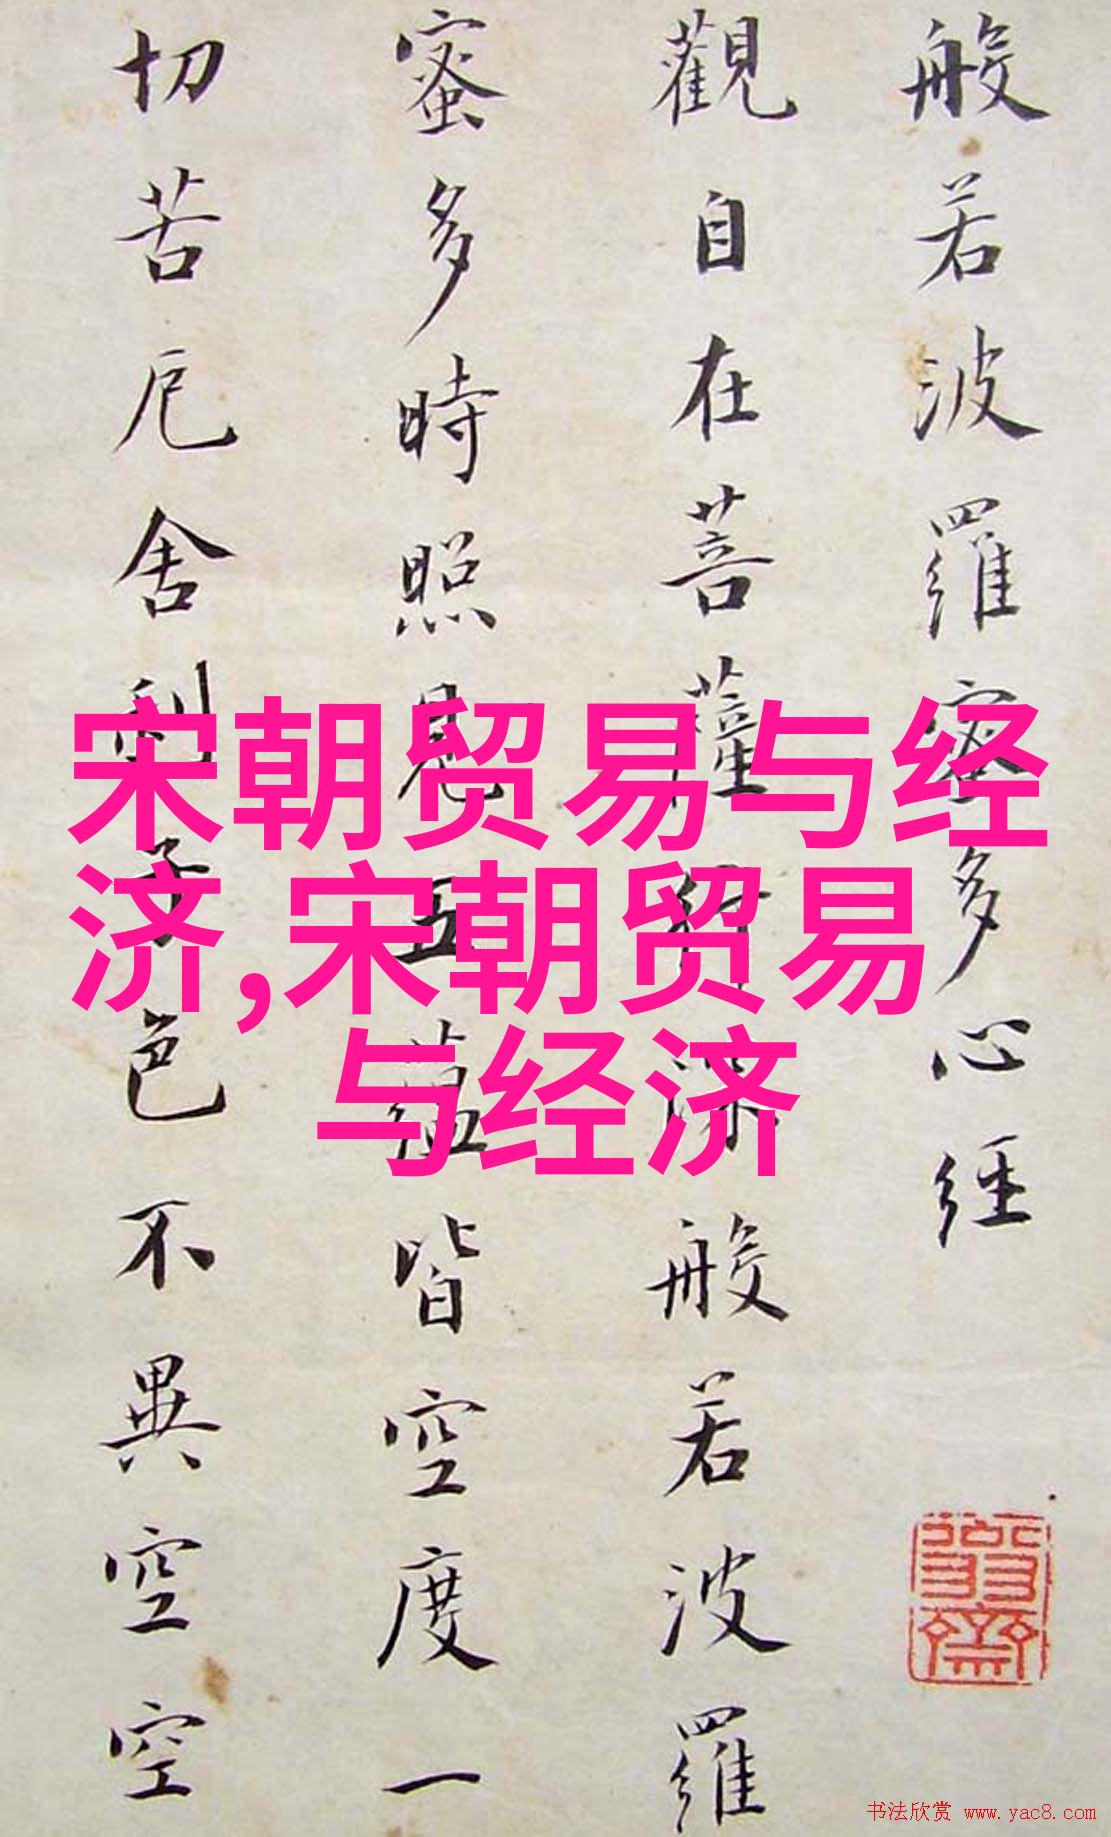 般若波羅蜜多心經
觀自在菩薩行深般若波羅
蜜多時照見五蘊皆空度一
切苦厄舍利子色不異空空
宋朝贸易与经
济,宋朝贸易
与经济
书法欣赏 www.yac8.com